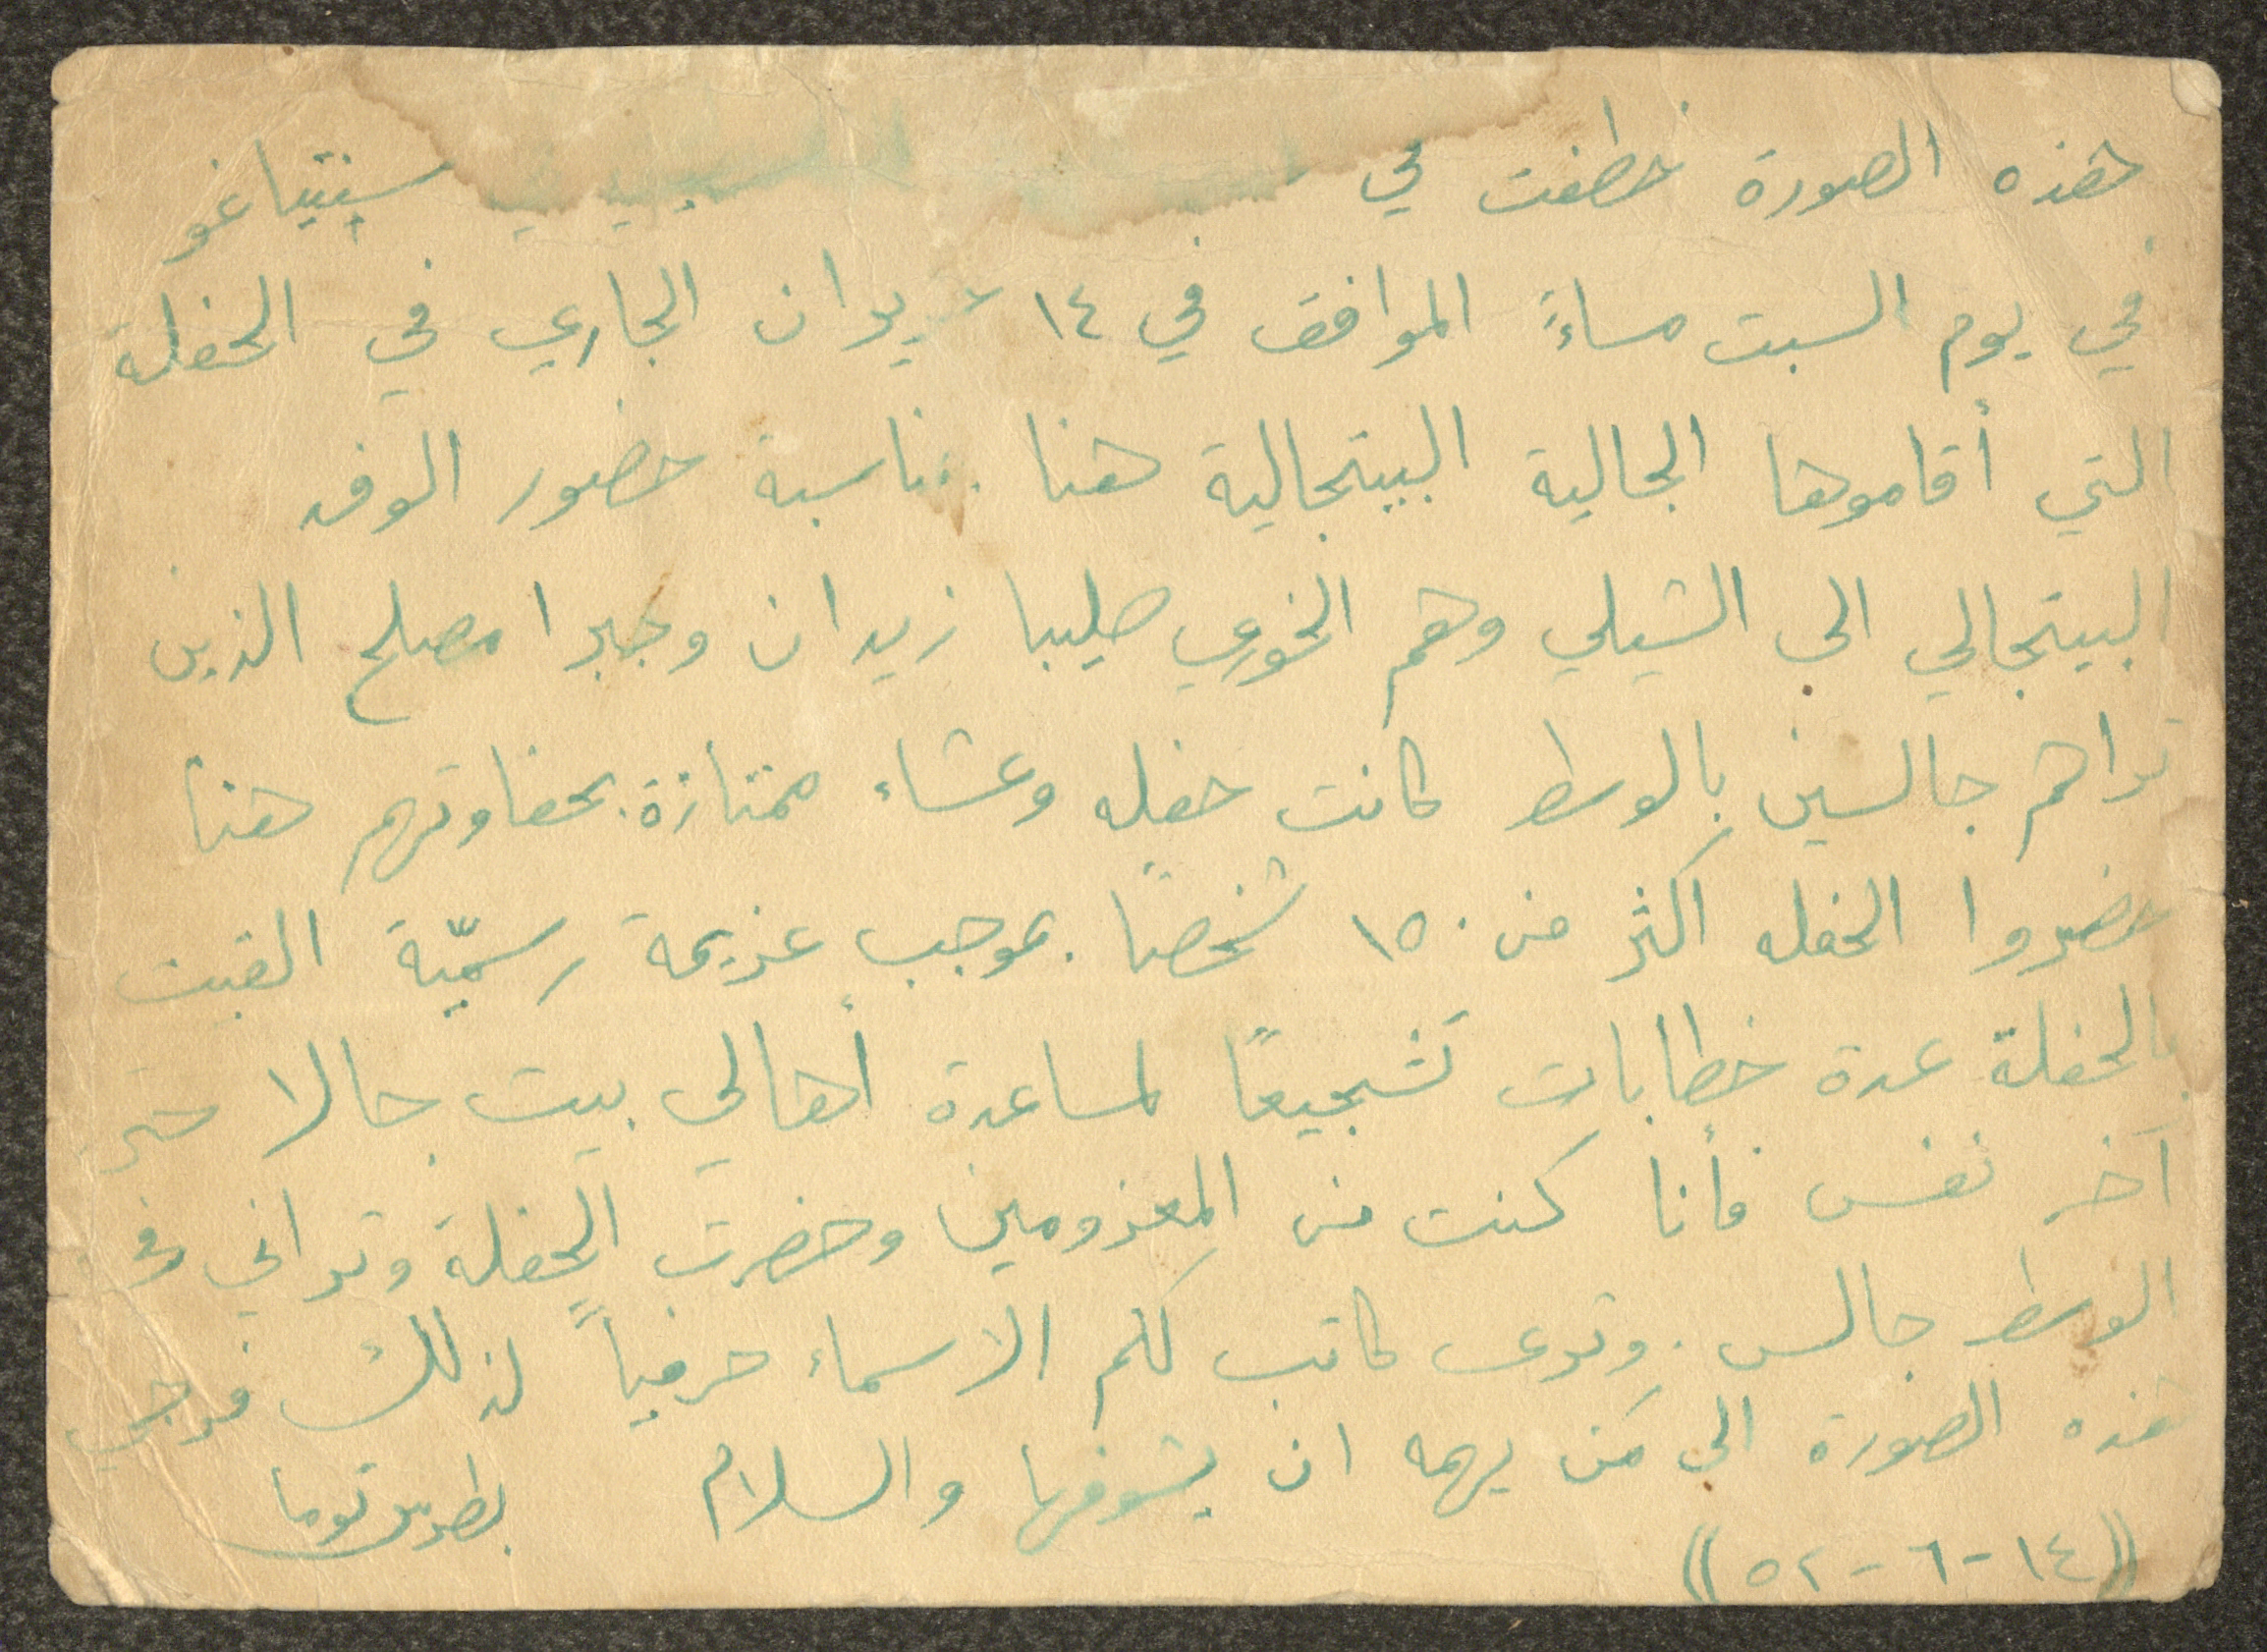 هذه الصورة خطفت في سنتياغو
في يوم السبت مساءً الموافق في ١٤ حزيران الجاري في الحفلة
التي أقاموها الجالية البيتجالية هنا بمناسبة حضور الوفد
البيتجالي الى الشيلي وهم الخوري صليبا زيدان وجبرا مصلح الذين
تراهم جالسين بالوسط كانت حفله وعشاء ممتازة بحفاوتهم هنا
حضروا الحفله اكثر من ١٥٠ شخصًا بموجب عزيمة رسميّة القيت
بالحفلة عدة خطابات تشجيعًا لمساعدة أهالي بيت جالا
آخر نفس فأنا كنت من المعزومين وحضرت الحفلة وتراني في
الوسط جالس. وترى كاتب لكم الاسماء حرفياً لذلك فرجي
هذه الصورة الى مَن يهمه ان يشوفها والسلام بطرس توما
((١٤-٦-٥٢))